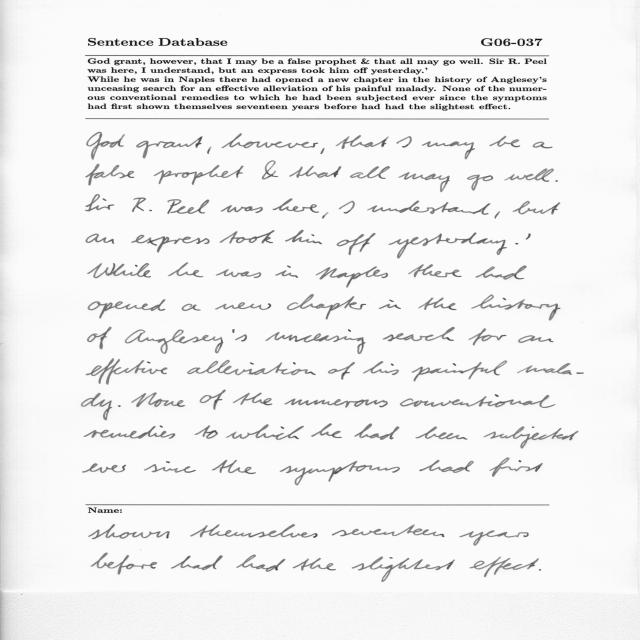 Sentence Database G06-037
God grant, however, that I may be a false prophet & that all may go well. Sir R. Peel
was here, I understand, but an express took him off yesterday.'
While he was in Naples there had opened a new chapter in the history of Anglesey's
unceasing search for an effective alleviation of his painful malady. None of the numer-
ous conventional remedies to which he had been subjected ever since the symptoms
had first shown themselves seventeen years before had had the slightest effect.
God grant, however, that I may be a
false prophet & that all may go well.
Sir R. Peel was here, I understand, but
an express took him off yesterday.'
While he was in Naples there had
opened a new chapter in the history
of Anglesey's unceasing search for an
effective alleviation of his painful mala-
dy. None of the numerous conventional
remedies to which he had been subjected
ever since the symptoms had first
Name:
shown themselves seventeen years
before had had the slightest effect.